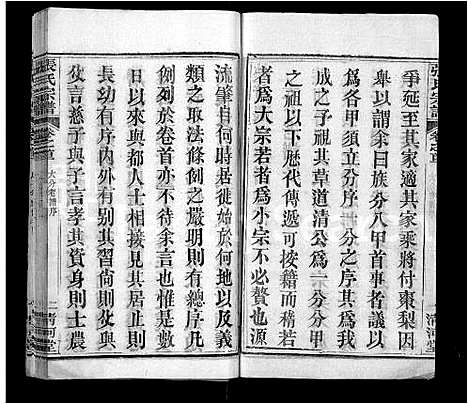 爭延至其家適其家乘將付棗梨因
舉以謂余曰族分八甲首事者議以
為各甲須立分序一分之序其為我
次第之于其草道清公為一分分甲
之祖以下歷代傳遞可按籍而稽若
者為大宗若者為小宗不必贅也源
流肇自何時居徙始于何地以及義
類之取法條例之嚴明則有總序凡
例列於卷首余不待余言也惟是數
日以來與都人士相接見其居止則
長幼內外有別其習尚則父與
父言慈子與子言孝其資身則士農
張氏宗譜
卷之首
清河堂
張氏宗譜
卷之首
大分老譜序
二
清河堂